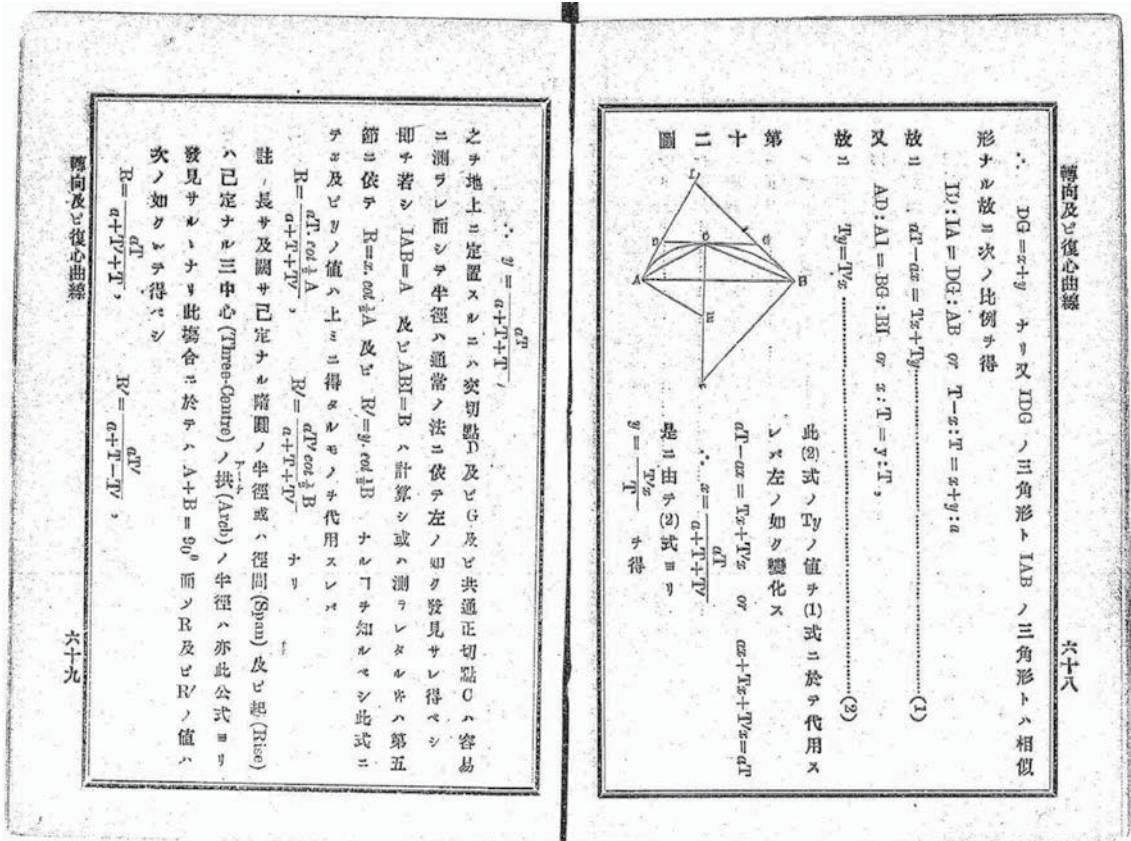 轉向及ヒ復心曲線
六十八
∴ DG=x+y ナリ又 IDG ノ三角形ト IAB ノ三角形トハ相似
形ナル故ニ次ノ比例ヲ得
ID:IA=DG:AB or T−x:T=x+y:a
故ニ aT−ax=Tx+Ty (1)
又 AD:AI=BG:BI or x:T=y:T′,
故ニ Ty=T′x (2)
第十二圖
I
D
C
G
A
B
此(2)式ノTyノ値ヲ(1)式ニ於テ代用ス
レバ左ノ如ク變化ス
aT−ax=Tx+T′x or ax+Tx+T′x=aT
∴ x=aT/a+T+T′
是ニ由テ(2)式ヨリ
y=T′x/T ヲ得
∴ y=aT′/a+T+T′,
之ヲ地上ニ定置スルニハ交切點D及ヒG及ヒ共通正切點Cハ容易
ニ測ラレ而シテ半徑ハ通常ノ法ニ依テ左ノ如ク發見サレ得ベシ
即チ若シ IAB=A 及ヒ ABI=B ハ計算シ或ハ測ラレタル件ハ第五
節ニ依テ R=x.cot ½A 及ヒ R′=y cot ½B ナルヿヲ知ルベシ此式ニ
テx及ヒyノ値ハ上ニ得タルモノヲ代用スレバ
R=aT. cot ½A/a+T+T′, R′=aT′ cot ½B/a+T+T′ ナリ
註 長サ及闊サ已定ナル隋圓ノ半徑或ハ徑間(Span)及ヒ起(Rise)
ハ已定ナル三中心(Three-Centre)ノ拱(Arch)ノ半徑ハ亦此公式ヨリ
發見サルヽナリ此塲合ニ於テハ A+B=90° 而シR及ヒR′ノ値ハ
次ノ如クルヲ得ベシ
R=aT/a+T′+T, R′=aT′/a+T−T′,
轉向及ヒ復心曲線
六十九